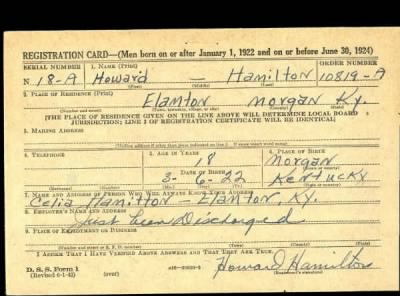 REGISTRATION CARD—(Men born on or after January 1, 1922 and on or before June 30, 1924)
SERIAL NUMBER 1. NAME (Print) ORDER NUMBER
N 18-A Howard — Hamilton 10819-A
(First) (Middle) (Last)
2. PLACE OF RESIDENCE (Print)
Elamton Morgan Ky.
(Number and street) (Town, township, village, or city) (County) (State)
[THE PLACE OF RESIDENCE GIVEN ON THE LINE ABOVE WILL DETERMINE LOCAL BOARD
JURISDICTION; LINE 2 OF REGISTRATION CERTIFICATE WILL BE IDENTICAL]
3. MAILING ADDRESS
4. TELEPHONE 5. AGE IN YEARS 6. PLACE OF BIRTH
18 Morgan
DATE OF BIRTH
3- 6- 22 Kentucky
(Exchange) (Number) (Mo.) (Day) (Yr.)
7. NAME AND ADDRESS OF PERSON WHO WILL ALWAYS KNOW YOUR ADDRESS
Celia Hamilton — Elamton, Ky.
8. EMPLOYER'S NAME AND ADDRESS
Just been Discharged
9. PLACE OF EMPLOYMENT OR BUSINESS
(Number and street or R. F. D. number) (Town) (County) (State)
I AFFIRM THAT I HAVE VERIFIED ABOVE ANSWERS AND THAT THEY ARE TRUE.
D. S. S. Form 1
(Revised 6-1-42) (over) Howard Hamilton
(Registrant's signature)